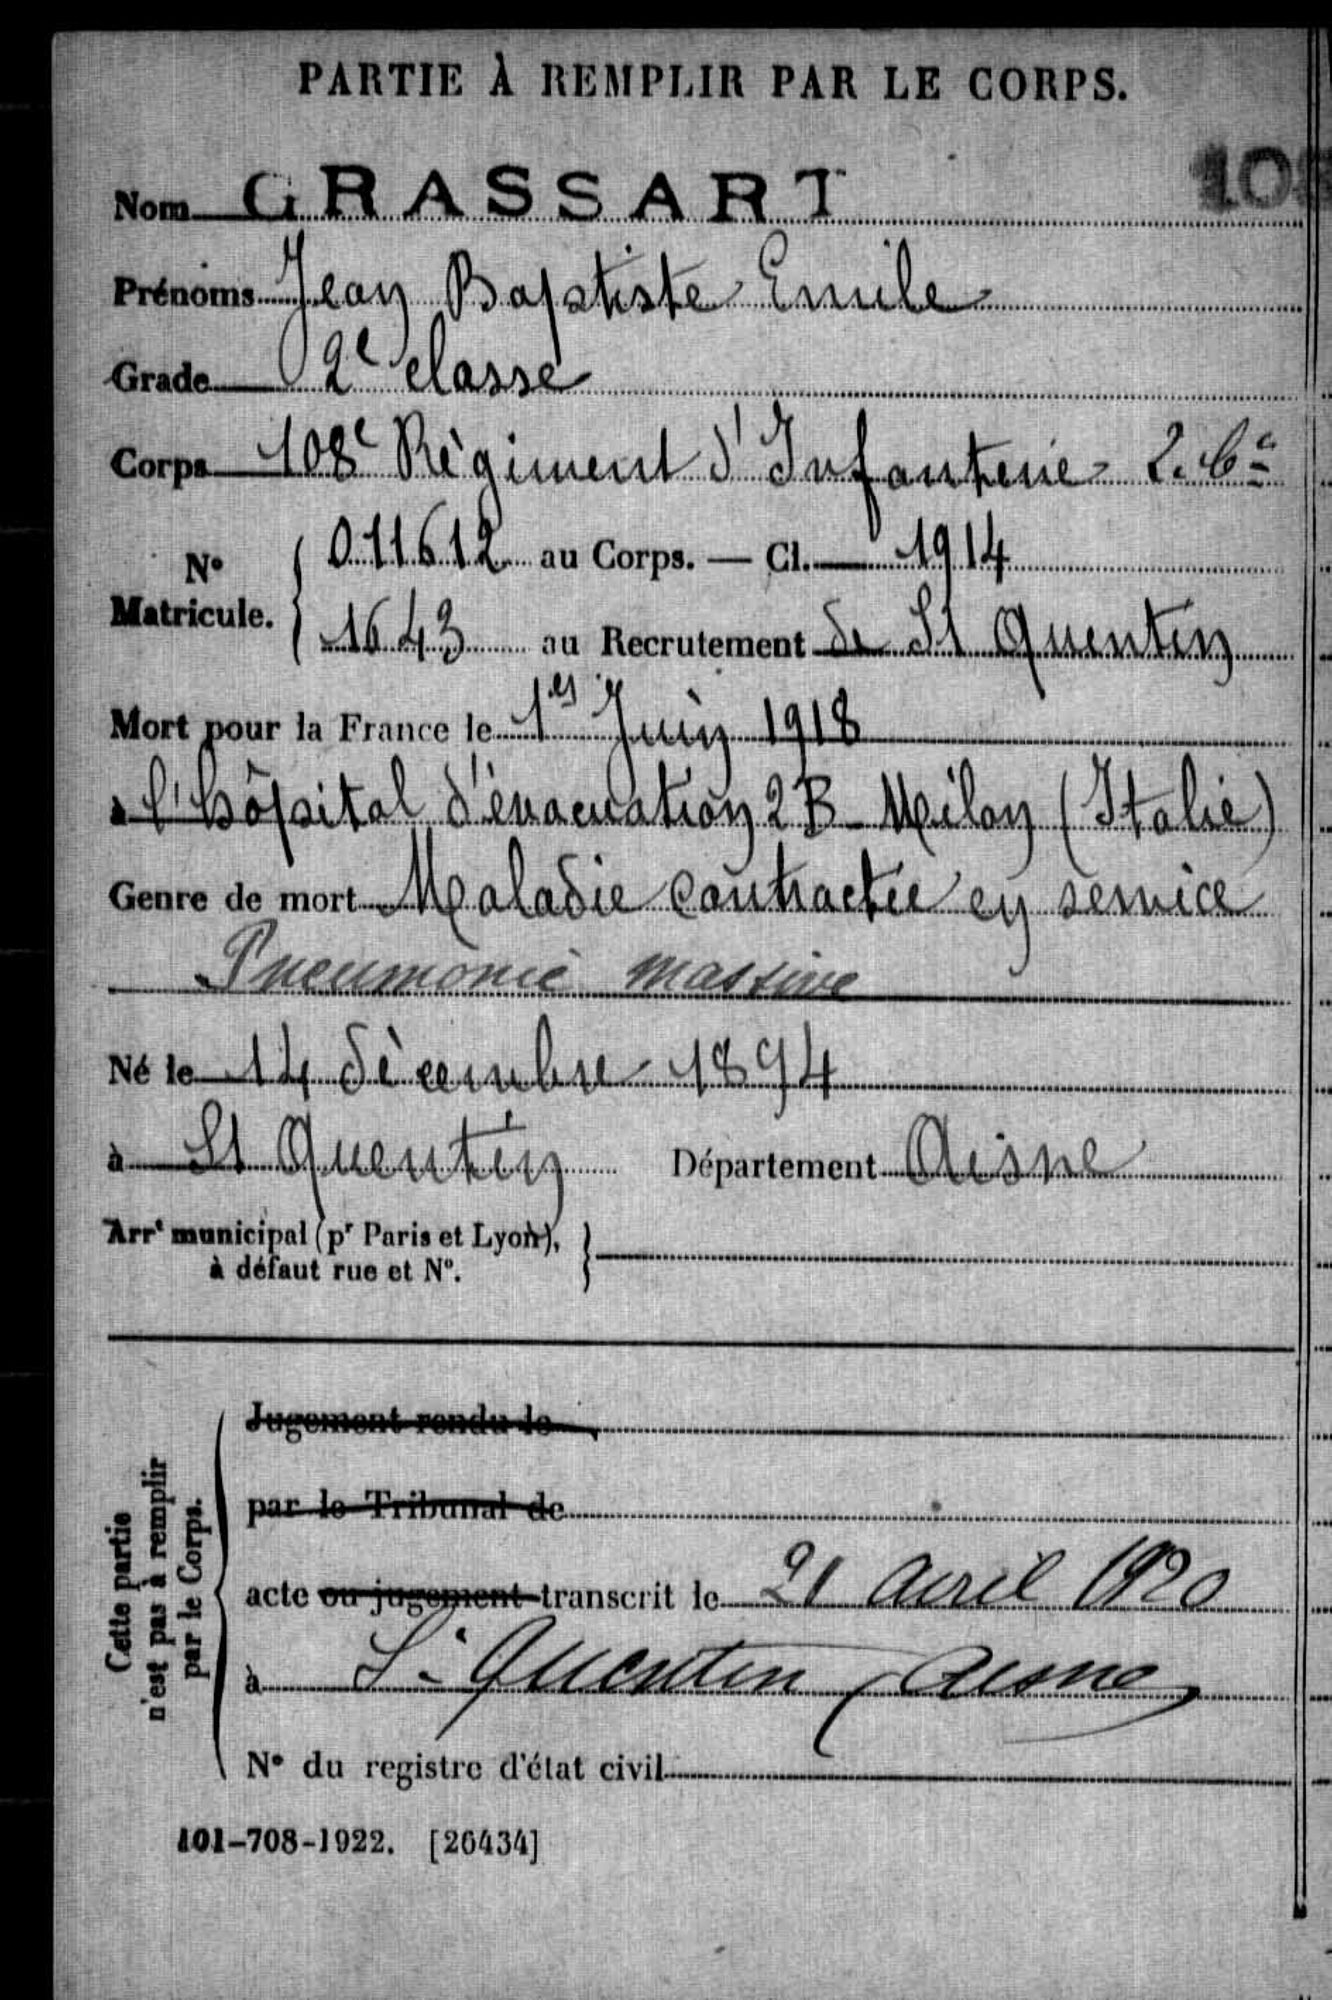 PARTIE À REMPLIR PAR LE CORPS.
Nom GRASSART
Prénoms Jean Baptiste Emile
Grade 2e classe
Corps 108e Régiment d'Infanterie 2. Cie
N° Matricule. 011612 au Corps. — Cl. 1914
1643 au Recrutement de St Quentin
Mort pour la France le 1er Juin 1918
à l'hôpital d'évacuation 2 B - Milan (Italie)
Genre de mort Maladie contractée en service
Pneumonie massive
Né le 14 décembre 1894
à St Quentin Département Aisne
Arrt municipal (pr Paris et Lyon),
à défaut rue et N°.
Jugement rendu le
par le Tribunal de
acte ou jugement transcrit le 21 avril 1920
à St Quentin (Aisne)
N° du registre d'état civil
Cette partie
n'est pas à remplir
par le Corps.
101-708-1922. [26434]